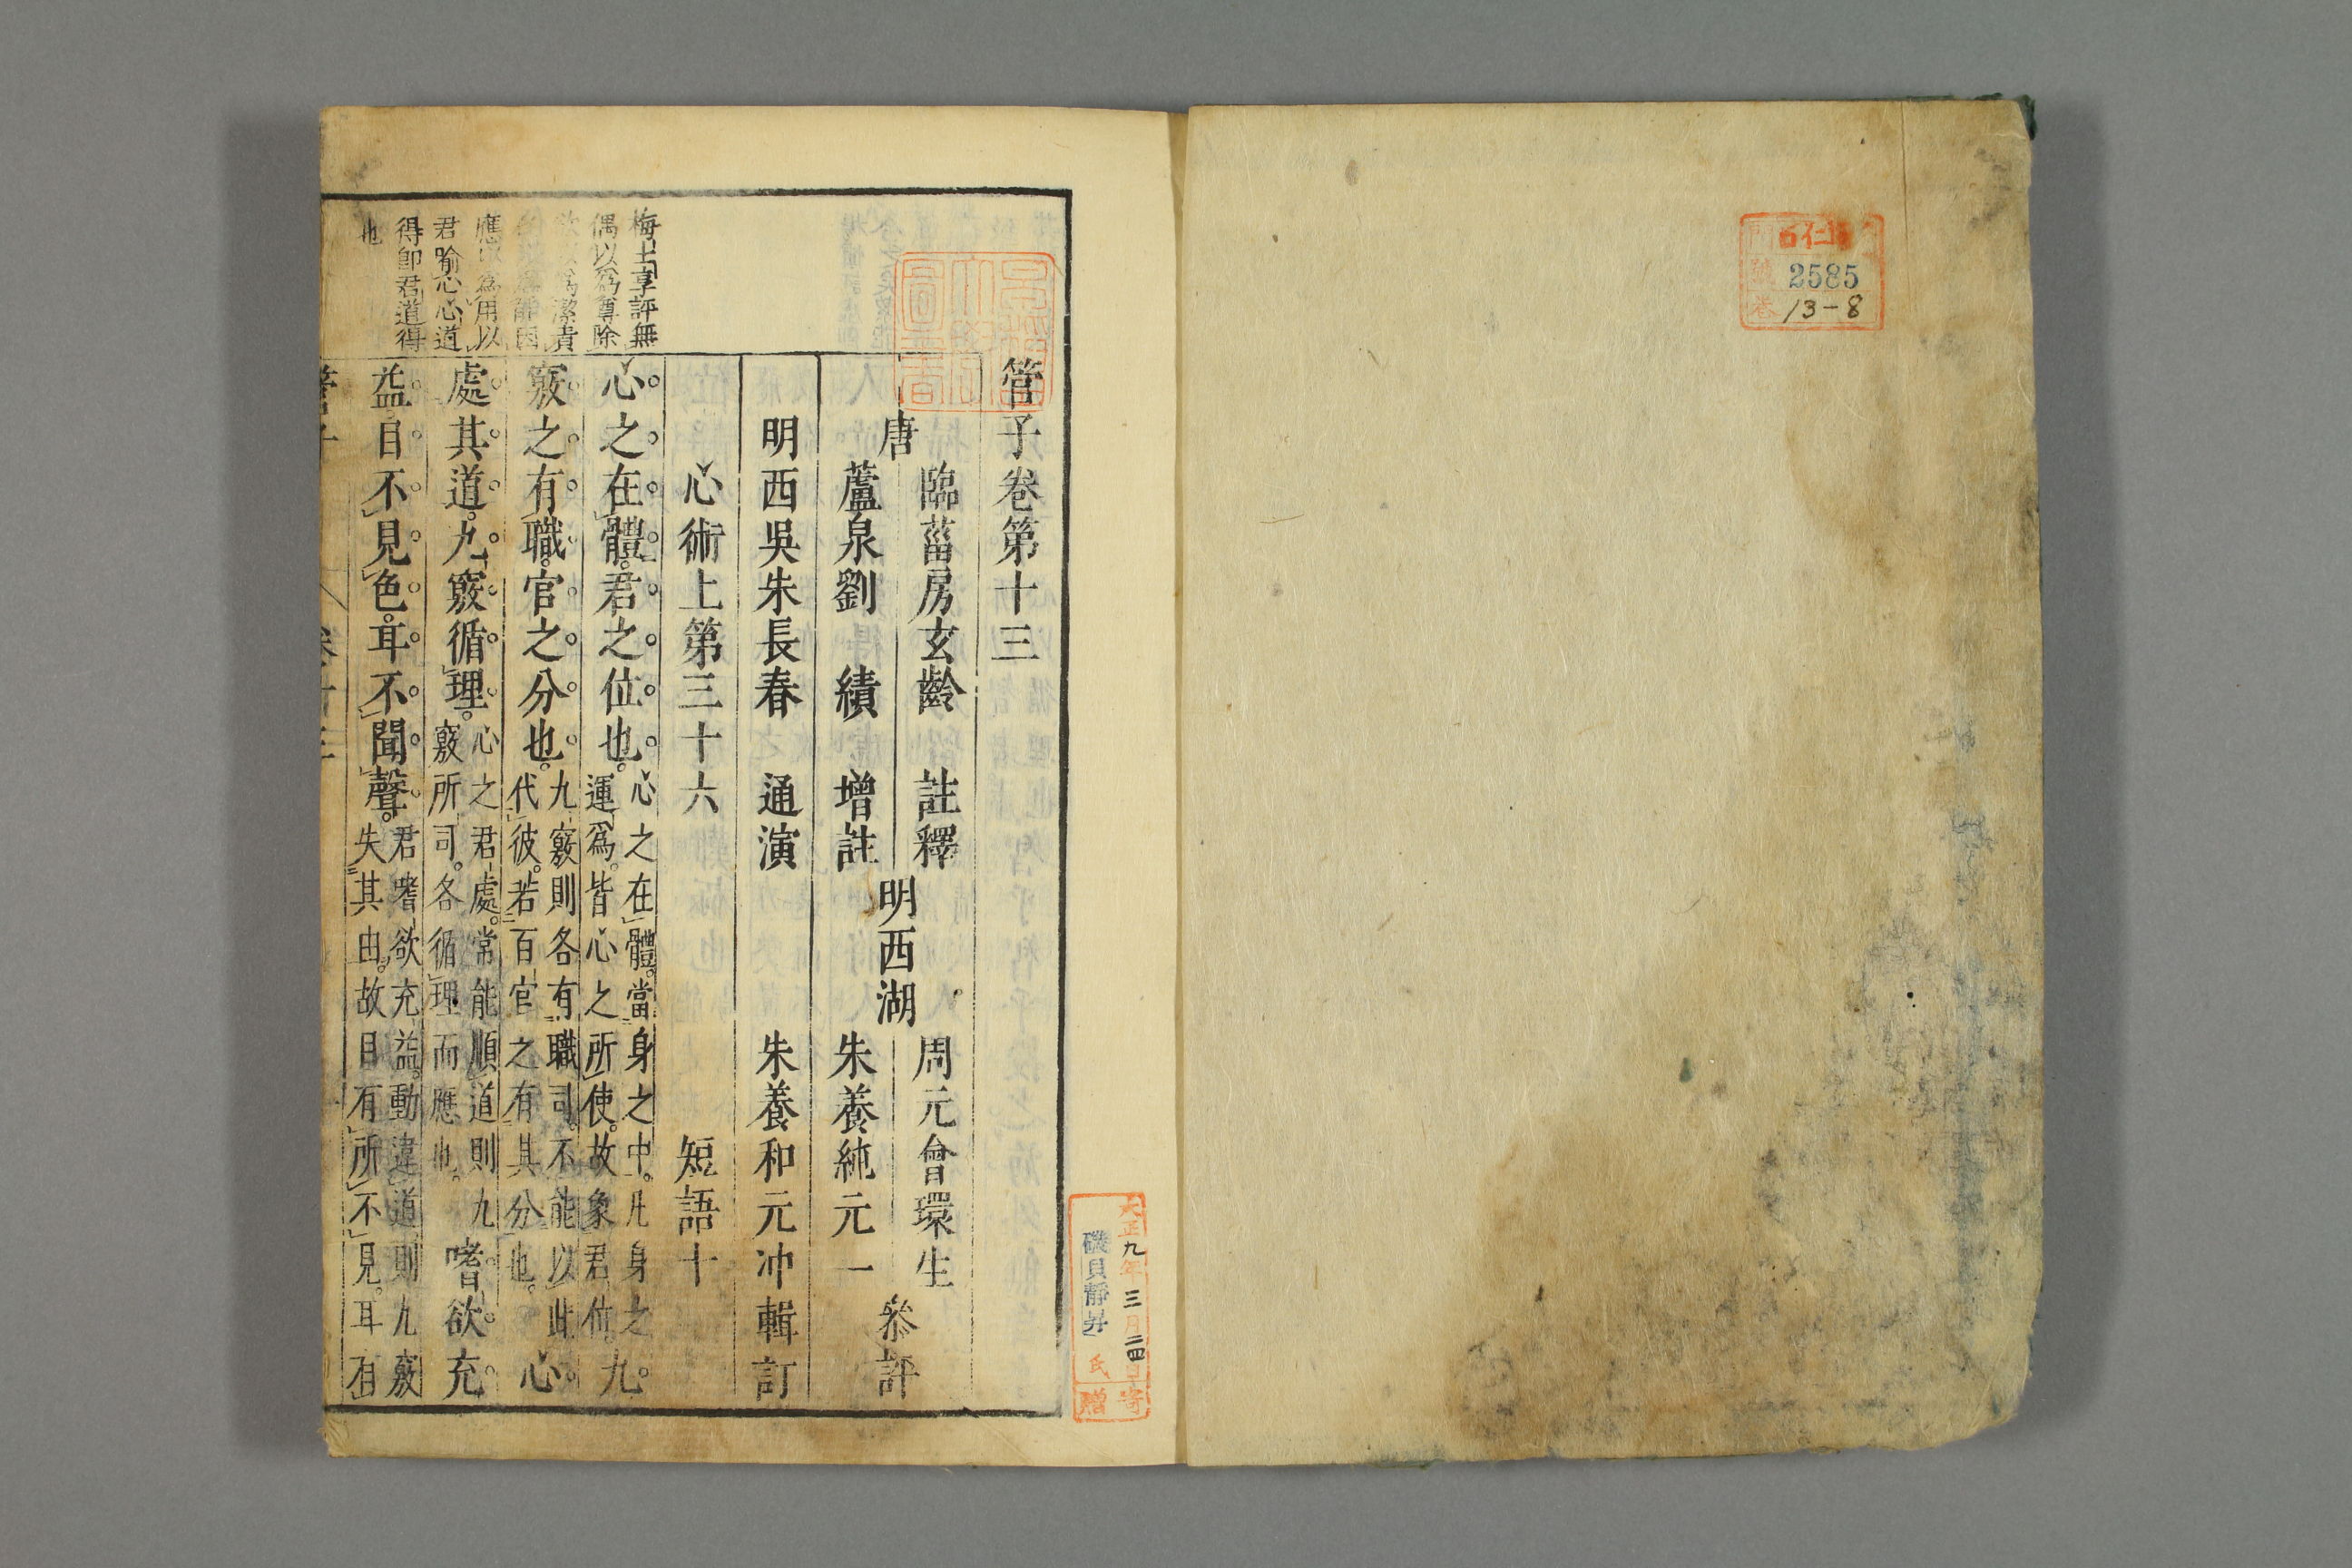 2585
13-8
大正九年三月二四日寄贈
磯貝靜
氏
管子卷第十三
唐
臨菑房玄齡　註釋
蘆泉劉　績　增註
明西湖
周元會環生
朱養純元一
叅評
明西吳朱長春　通演
朱養和元冲輯訂
心術上第三十六
短語十
心之在體君之位也
心之在體當身之中凡身之
運爲皆心之所使故象君位
九
竅之有職官之分也
九竅則各有職司不能以此
代彼若百官之有其分也
心
處其道九竅循理
心之君處常能順道則九
竅所司各循理而應也
嗜欲充
益目不見色耳不聞聲
君嗜欲充益動違道則九竅
失其由故目有所不見耳有
梅士享評無
偶以爲尊除
欲以爲潔責
應以爲用以
君喻心心道
得卽君道得
也